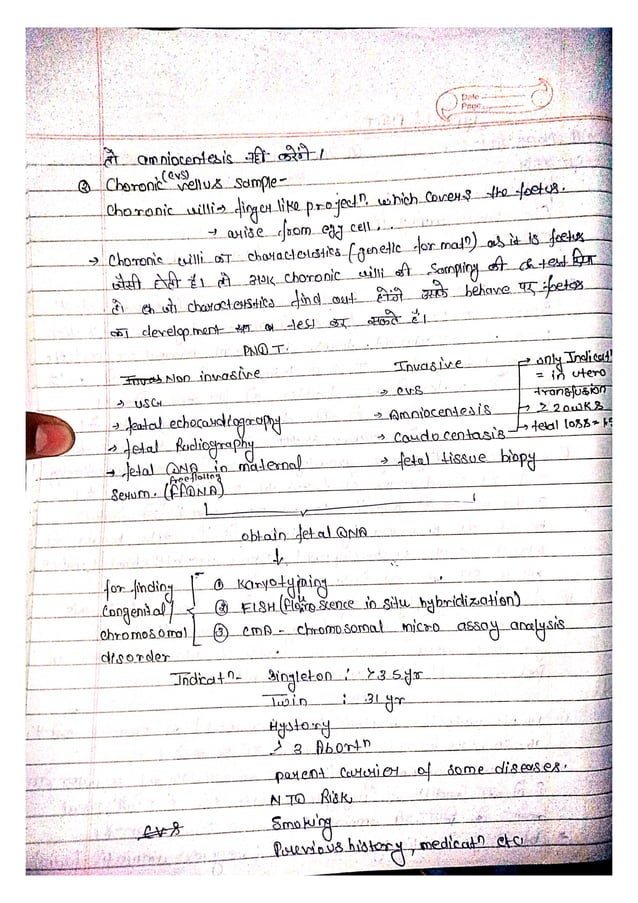 Date
Page
तो amniocentesis नहीं करेंगे।
② Choronic (CVS) vellus sample-
Choronic willi → finger like projectn. which covers the foetus.
→ arise from egg cell...
→ Choronic willi का characteristics (genetic formatn) as it is foetus
जैसी होती है। तो अगर choronic willi की sampling की test
तो characteristics find out होंगे उसके behave पर foetos
का development test कर सकते है।
PNDT.
Non invasive
Invasive
→ USG
→ feotal echocardiography
→ fetal Radiography
→ fetal DNA in maternal
serum. (free floting ffDNA)
→ CVS
→ Amniocentesis
→ Caudocentasis
→ fetal tissue biopy
→ only Indicat
= in utero
transfusion
→ ≥ 20 WKS
→ fetal loss =
obtain fetal DNA
for finding
congenital
chromosomal
disorder
① Karyotyining
② FISH (Fluroscence in situ hybridization)
③ CMA - chromosomal micro assay analysis
Indicatn- Singleton : >35yr
Twin : 31 yr
Hystory
> 3 Abortn
parent carrier of some diseases.
NTD Risk
CVS
Smoking
Parevious history, medicatn etc.